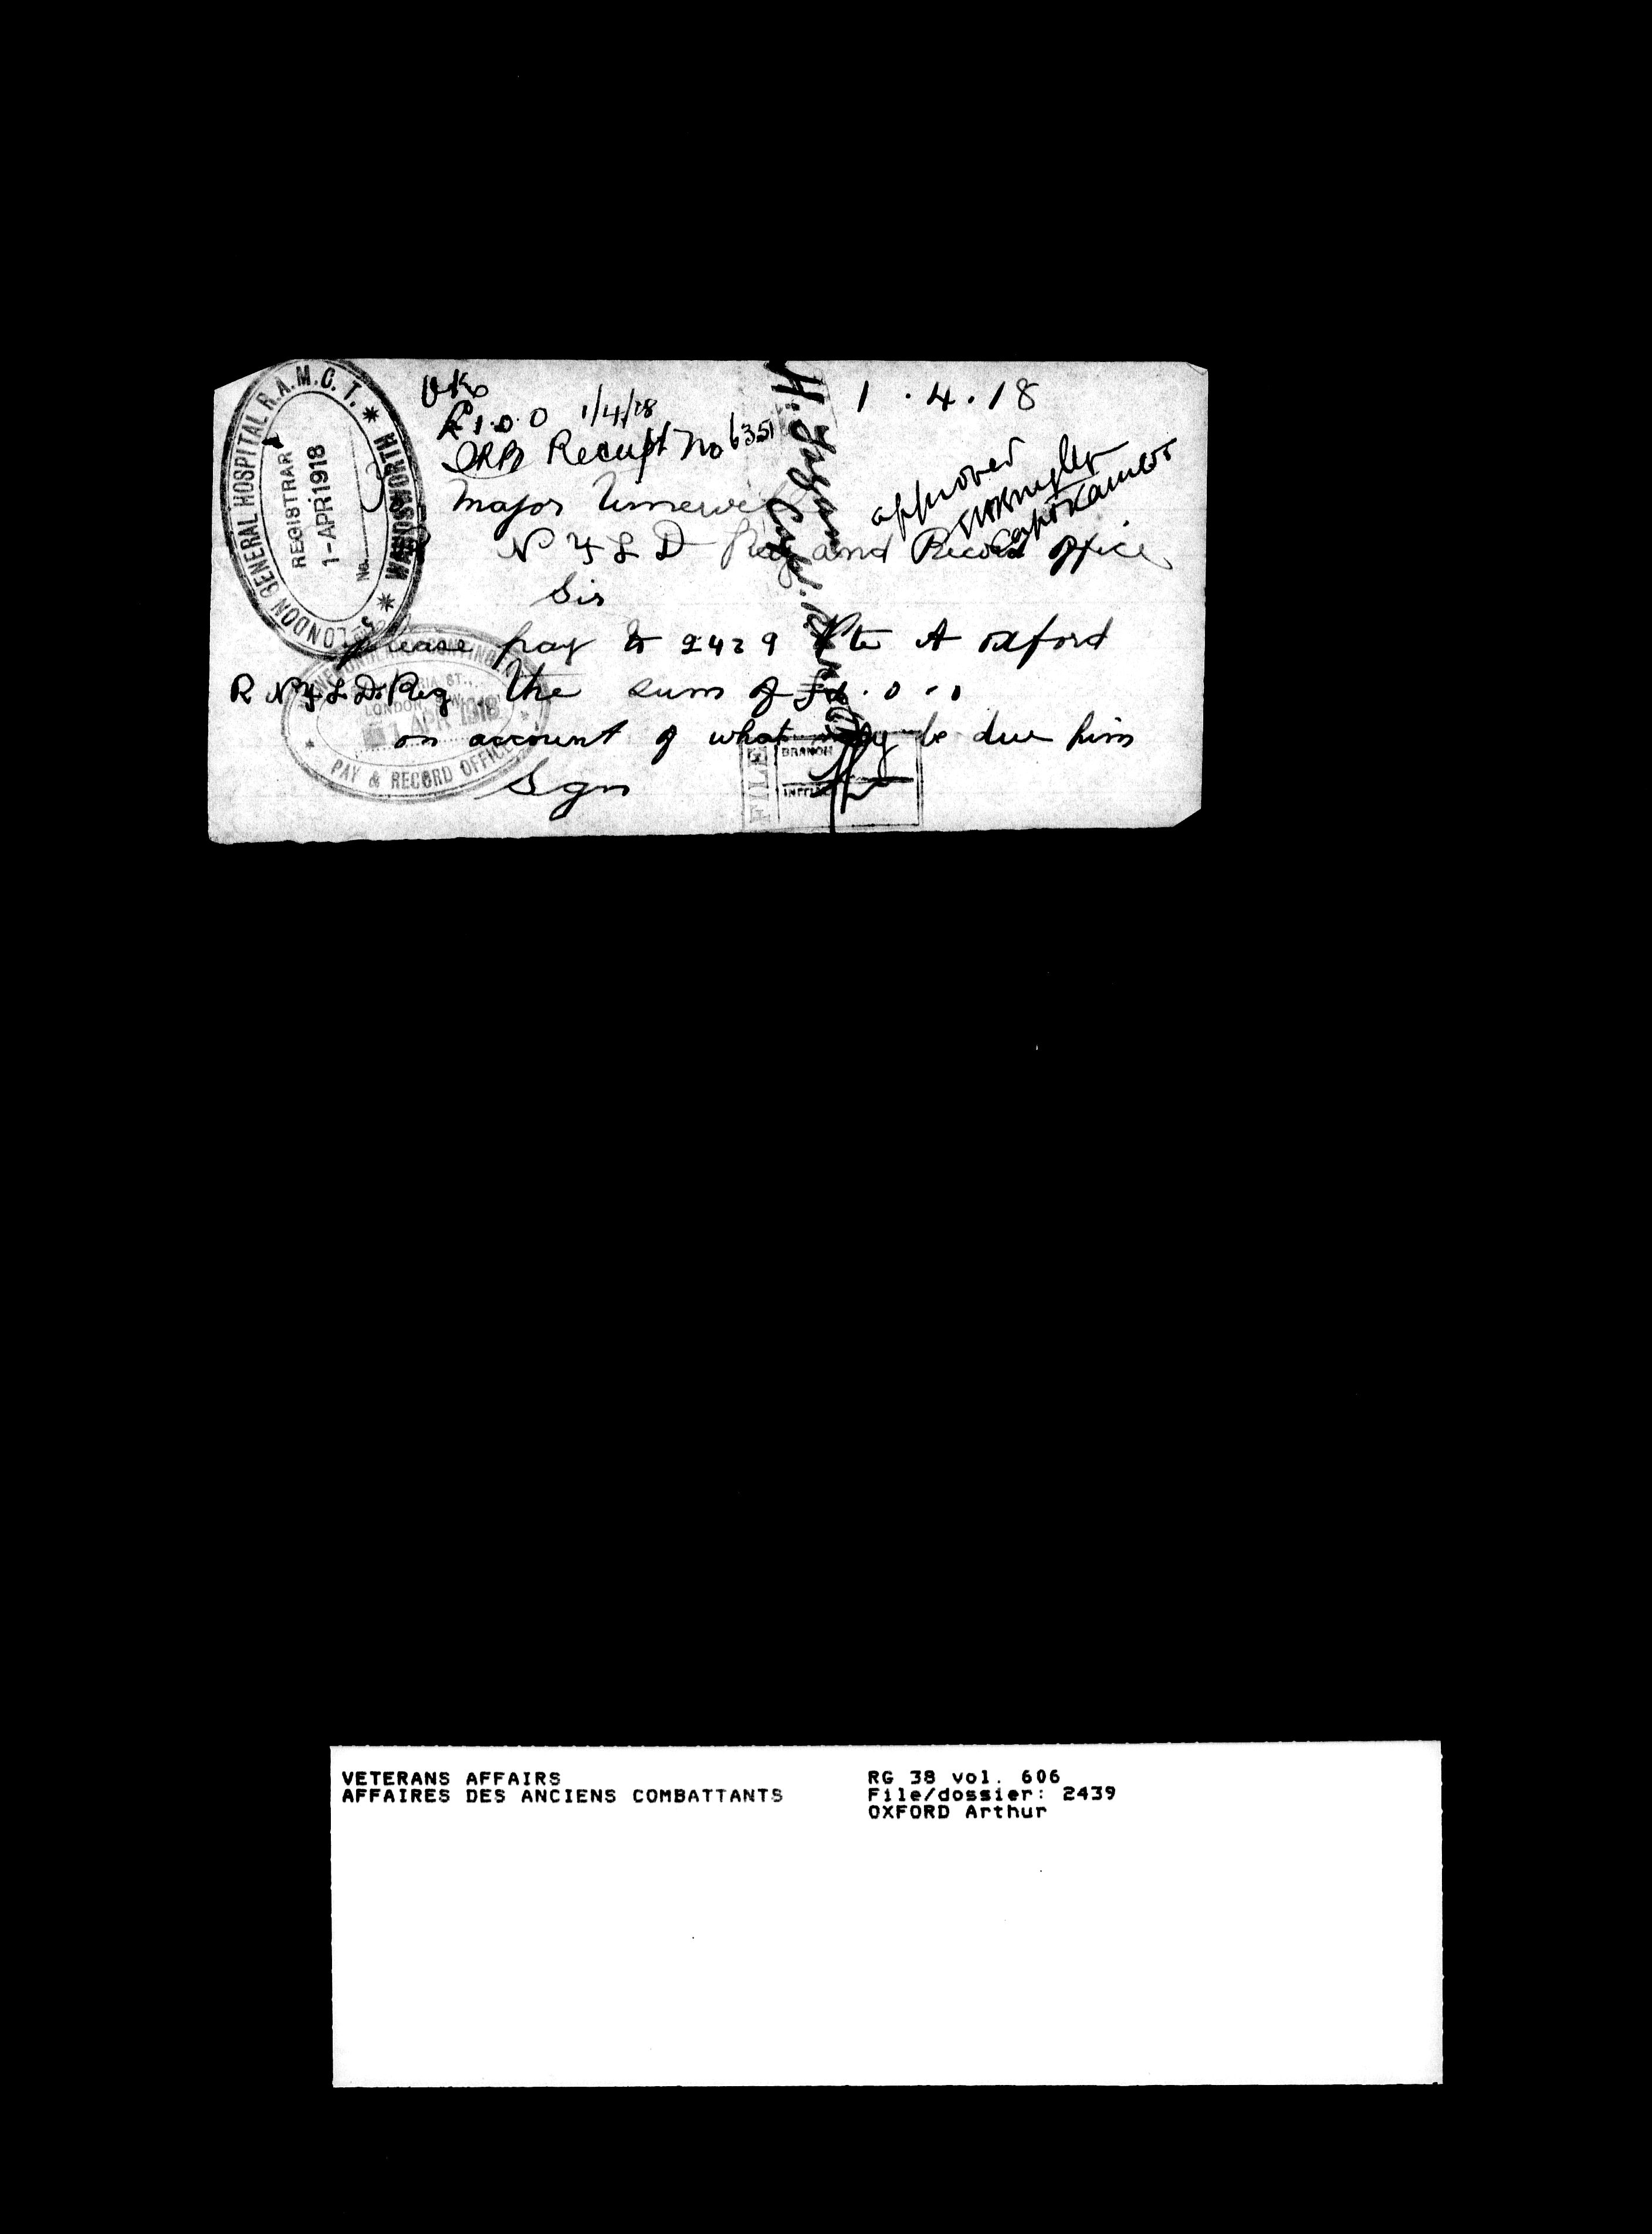 3 LONDON GENERAL HOSPITAL R.A.M.C. T. * WANDSWORTH *
REGISTRAR
1-APR1918
No.
OK
£1.0.0 1/4/18
Receipt No 6351
1.4.18
approved
Major
N F L D and Record Office
Sir
please pay to 2429 Pte A Oxford
R N F L D Reg the sum of £1.0-0
on account of what may be due him
Sgn
LONDON, S.W.
1 APR 1918
PAY & RECORD OFFICE
FILE
BRANCH
INITIALS
VETERANS AFFAIRS
AFFAIRES DES ANCIENS COMBATTANTS
RG 38 vol. 606
File/dossier: 2439
OXFORD Arthur